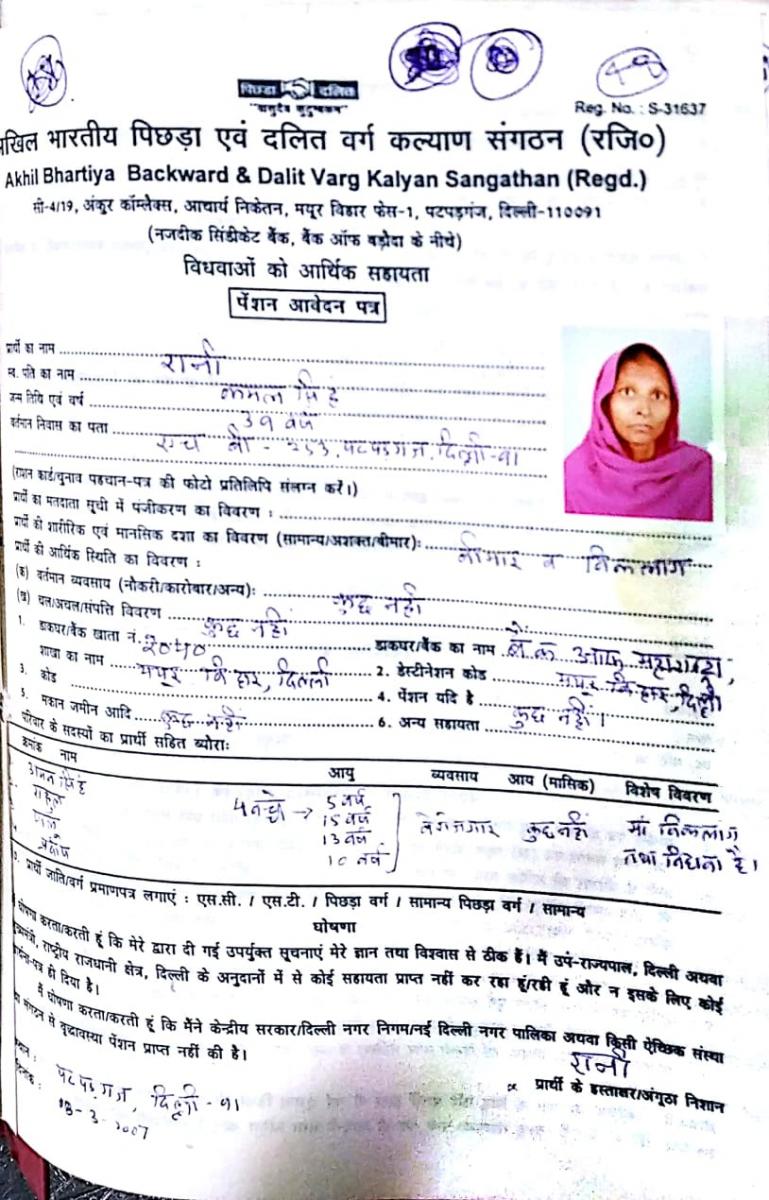 48
पिछड़ा दलित
"वासुदेव कुटुम्बकम"
Reg. No. : S-31637
अखिल भारतीय पिछड़ा एवं दलित वर्ग कल्याण संगठन (रजि०)
Akhil Bhartiya Backward & Dalit Varg Kalyan Sangathan (Regd.)
सी-4/19, अंकुर कॉम्लैक्स, आचार्य निकेतन, मयूर विहार फेस-1, पटपड़गंज, दिल्ली-110091
(नजदीक सिंडीकेट बैंक, बैंक ऑफ बड़ौदा के नीचे)
विधवाओं को आर्थिक सहायता
पेंशन आवेदन पत्र
प्रार्थी का नाम रानी
स्व. पति का नाम कमल सिंह
जन्म तिथि एवं वर्ष 39 वर्ष
वर्तमान निवास का पता एच बी - 253, पटपड़गंज, दिल्ली-91
(राशन कार्ड/चुनाव पहचान-पत्र की फोटो प्रतिलिपि संलग्न करें।)
प्रार्थी का मतदाता सूची में पंजीकरण का विवरण :
प्रार्थी की शारीरिक एवं मानसिक दशा का विवरण (सामान्य/अशक्त/बीमार): बीमार व विकलांग
प्रार्थी की आर्थिक स्थिति का विवरण :
(क) वर्तमान व्यवसाय (नौकरी/कारोबार/अन्य): कुछ नहीं
(ख) चल/अचल/संपत्ति विवरण कुछ नहीं
1. डाकघर/बैंक खाता नं. 2040 डाकघर/बैंक का नाम बैंक आफ महाराष्ट्रा,
शाखा का नाम मयूर विहार, दिल्ली 2. डेस्टीनेशन कोड मयूर विहार, दिल्ली
3. कोड 4. पेंशन यदि है
5. मकान जमीन आदि कुछ नहीं 6. अन्य सहायता कुछ नहीं।
परिवार के सदस्यों का प्रार्थी सहित ब्योराः
क्रमांक नाम आयु व्यवसाय आय (मासिक) विशेष विवरण
सिंह 4 बच्चे → 5 वर्ष
राहुल 15 वर्ष बेरोजगार कुछ नहीं मां विकलांग
13 वर्ष तथा विधवा है।
प्रदीप 10 वर्ष
प्रार्थी जाति/वर्ग प्रमाणपत्र लगाएं : एस.सी. / एस.टी. / पिछड़ा वर्ग / सामान्य पिछड़ा वर्ग / सामान्य
घोषणा
घोषणा करता/करती हूं कि मेरे द्वारा दी गई उपर्युक्त सूचनाएं मेरे ज्ञान तथा विश्वास से ठीक हैं। मैं उप-राज्यपाल, दिल्ली अथवा
मुख्यमंत्री, राष्ट्रीय राजधानी क्षेत्र, दिल्ली के अनुदानों में से कोई सहायता प्राप्त नहीं कर रहा हूं/रही हूं और न इसके लिए कोई
प्रार्थना-पत्र ही दिया है।
मैं घोषणा करता/करती हूं कि मैंने केन्द्रीय सरकार/दिल्ली नगर निगम/नई दिल्ली नगर पालिका अथवा किसी ऐच्छिक संस्था
या संगठन से वृद्धावस्था पेंशन प्राप्त नहीं की है।
रानी
स्थान : पटपड़गंज, दिल्ली-91 प्रार्थी के हस्ताक्षर/अंगूठा निशान
दिनांक : 13-3-2007